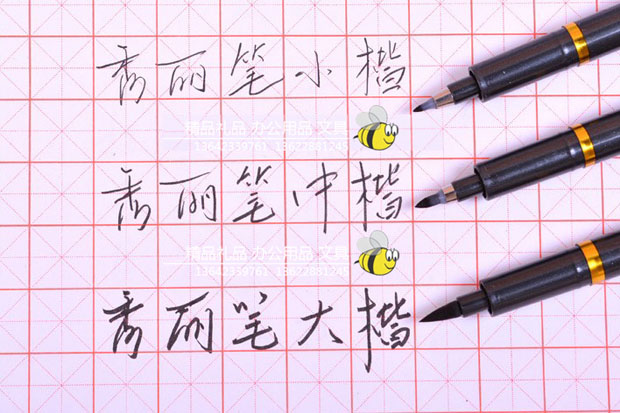 秀丽笔小楷
精品礼品 办公用品 文具
13642359761 13622881245
秀丽笔中楷
精品礼品 办公用品 文具
13642359761 13622881245
秀丽笔大楷